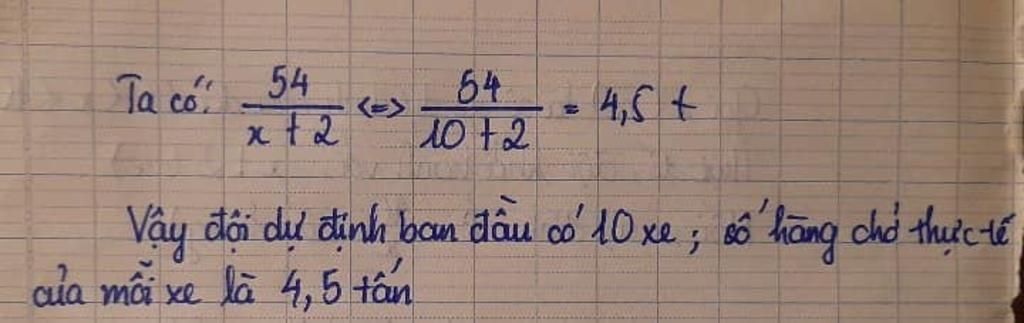 Ta có: 54/(x + 2) <=> 54/(10 + 2) = 4,5 t
Vậy đội dự định ban đầu có 10 xe; số hàng chở thực tế
của mỗi xe là 4,5 tấn